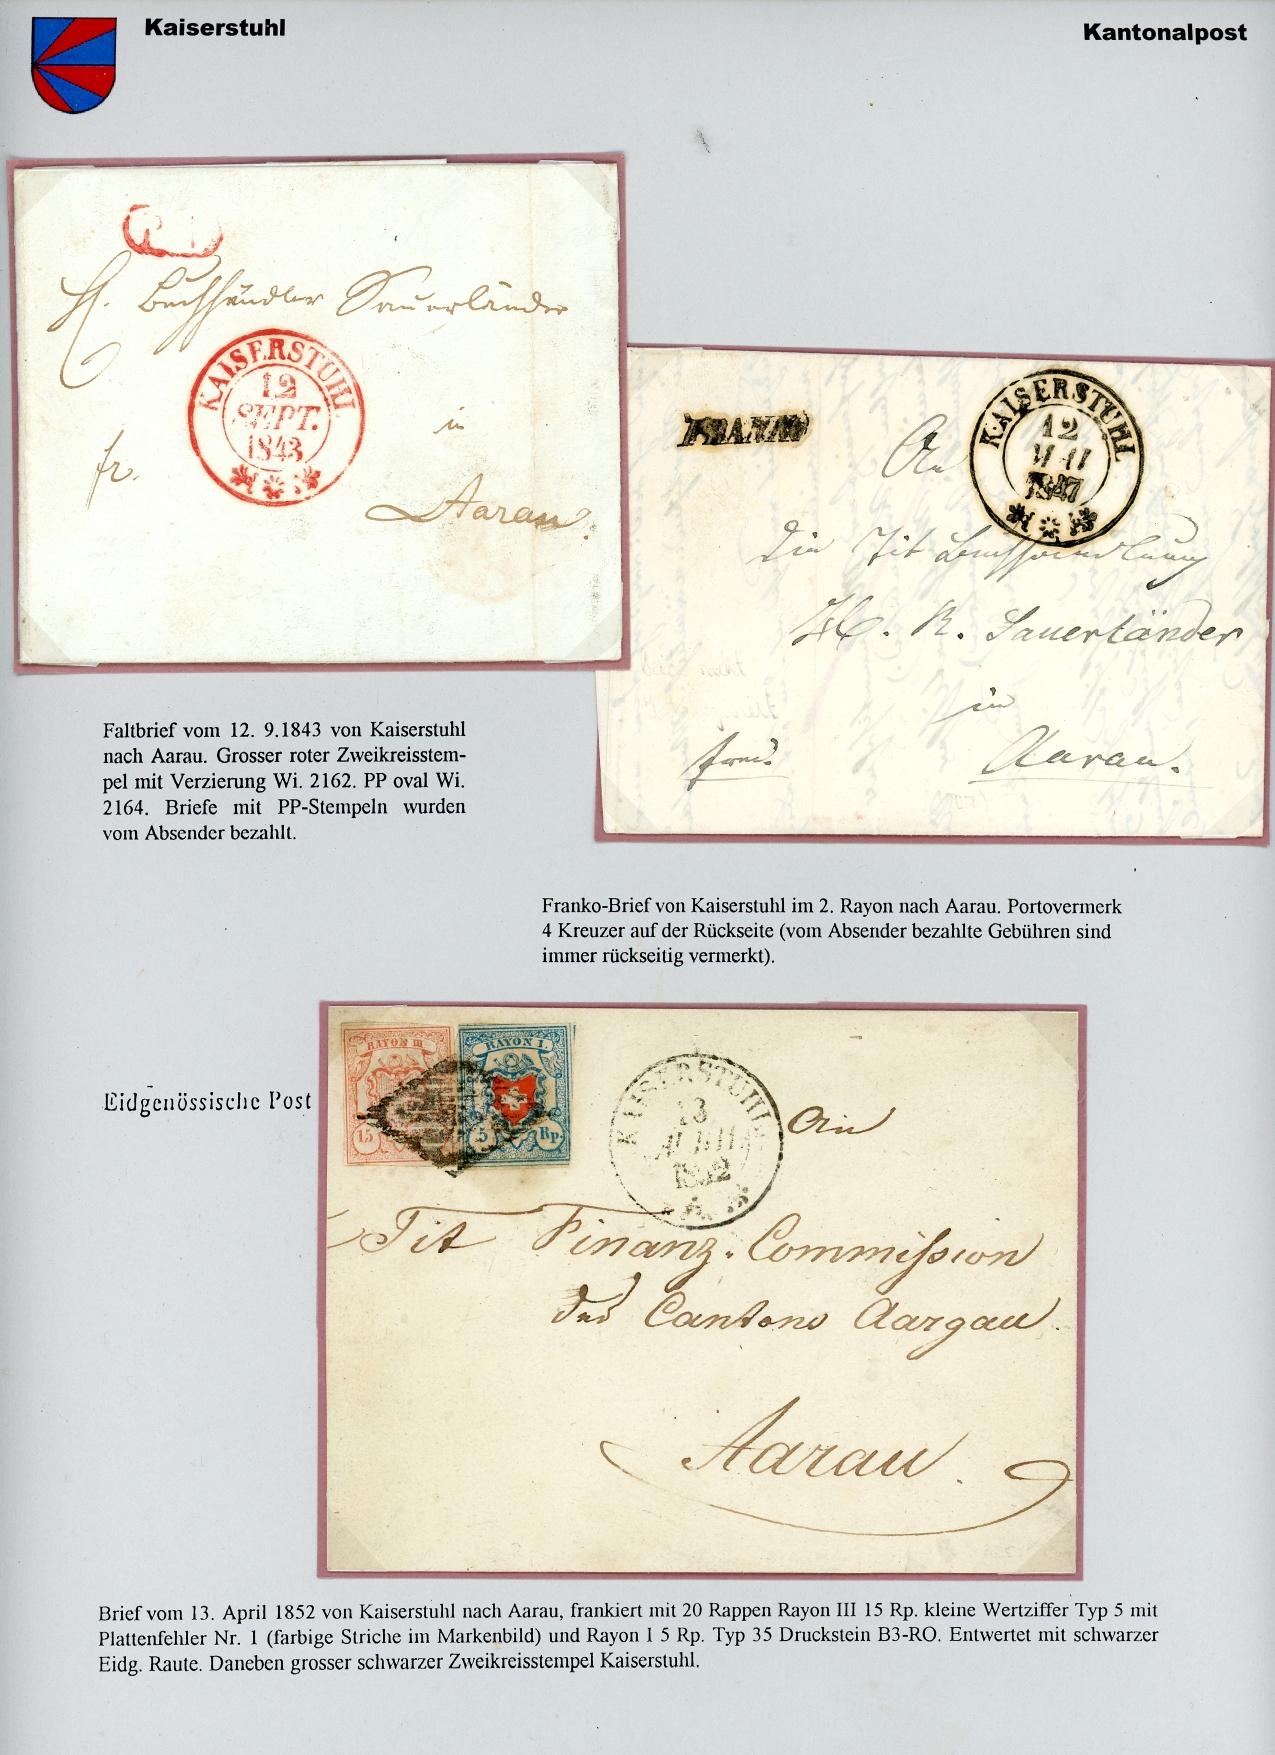 Kaiserstuhl
Kantonalpost
H. Buchhändler Sauerländer
KAISERSTUHL
12
SEPT.
1843
in
fr.
Aarau.
FRANCO
KAISERSTUHL
12
MAI
1847
An
die Tit Buchhandlung
H. R. Sauerländer
in
Aarau.
Faltbrief vom 12. 9.1843 von Kaiserstuhl
nach Aarau. Grosser roter Zweikreisstem-
pel mit Verzierung Wi. 2162. PP oval Wi.
2164. Briefe mit PP-Stempeln wurden
vom Absender bezahlt.
Franko-Brief von Kaiserstuhl im 2. Rayon nach Aarau. Portovermerk
4 Kreuzer auf der Rückseite (vom Absender bezahlte Gebühren sind
immer rückseitig vermerkt).
Eidgenössische Post
RAYON III
15
RAYON I.
5 Rp.
KAISERSTUHL
13
APRIL
1852
An
Tit Finanz-Commission
des Cantons Aargau.
Aarau.
Brief vom 13. April 1852 von Kaiserstuhl nach Aarau, frankiert mit 20 Rappen Rayon III 15 Rp. kleine Wertziffer Typ 5 mit
Plattenfehler Nr. 1 (farbige Striche im Markenbild) und Rayon I 5 Rp. Typ 35 Druckstein B3-RO. Entwertet mit schwarzer
Eidg. Raute. Daneben grosser schwarzer Zweikreisstempel Kaiserstuhl.